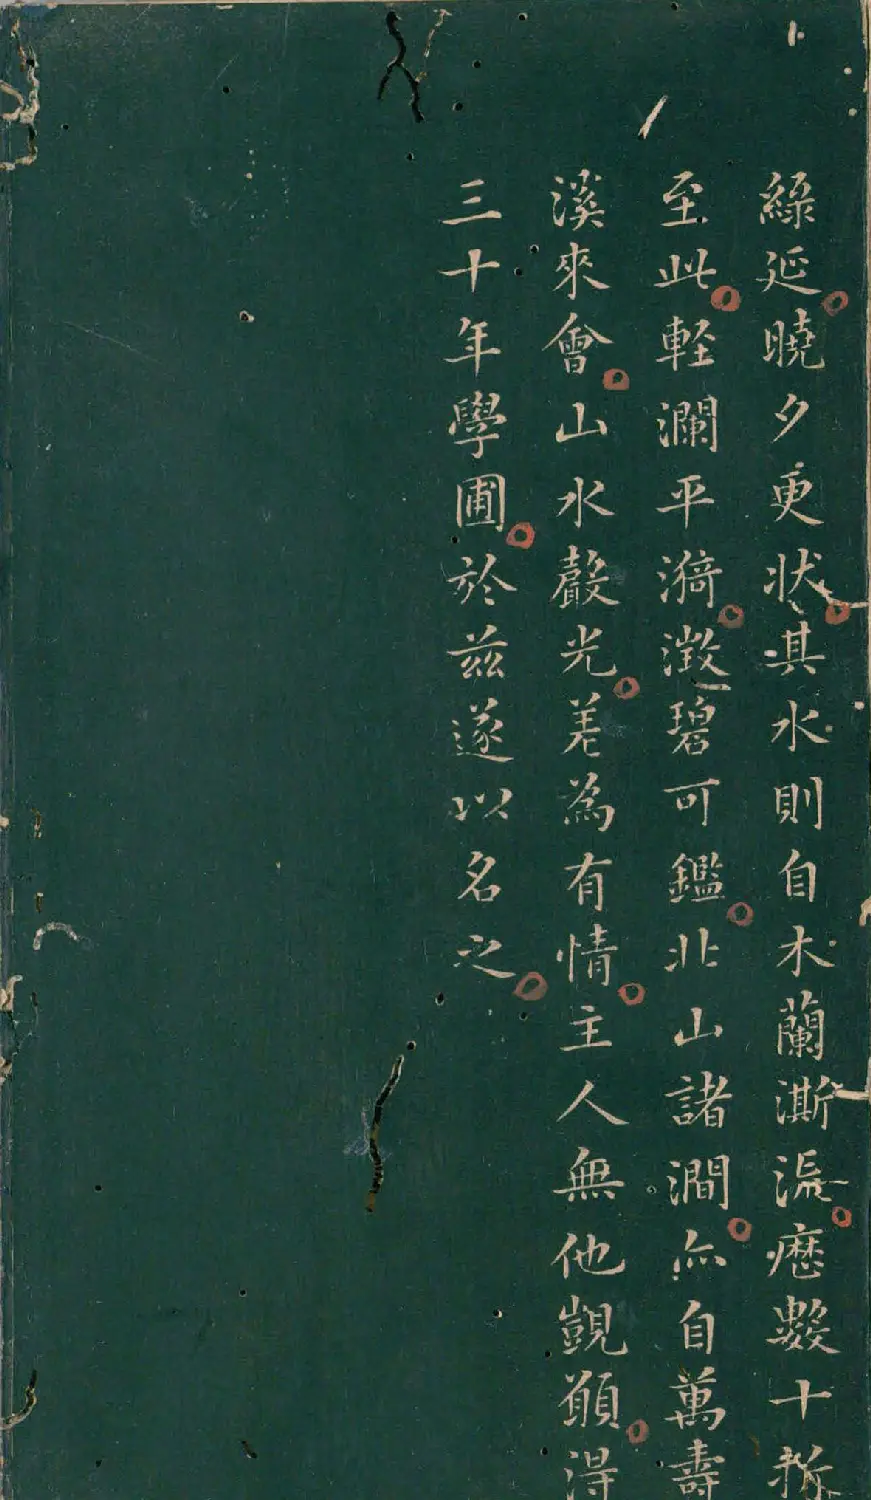 緣延曉夕更狀其水則自木蘭澌流歷數十折
至此軽瀾平漪澂碧可鑑北山諸澗亦自萬壽
溪來會山水聲光差為有情主人無他覬願得
三十年學圃於茲遂以名之